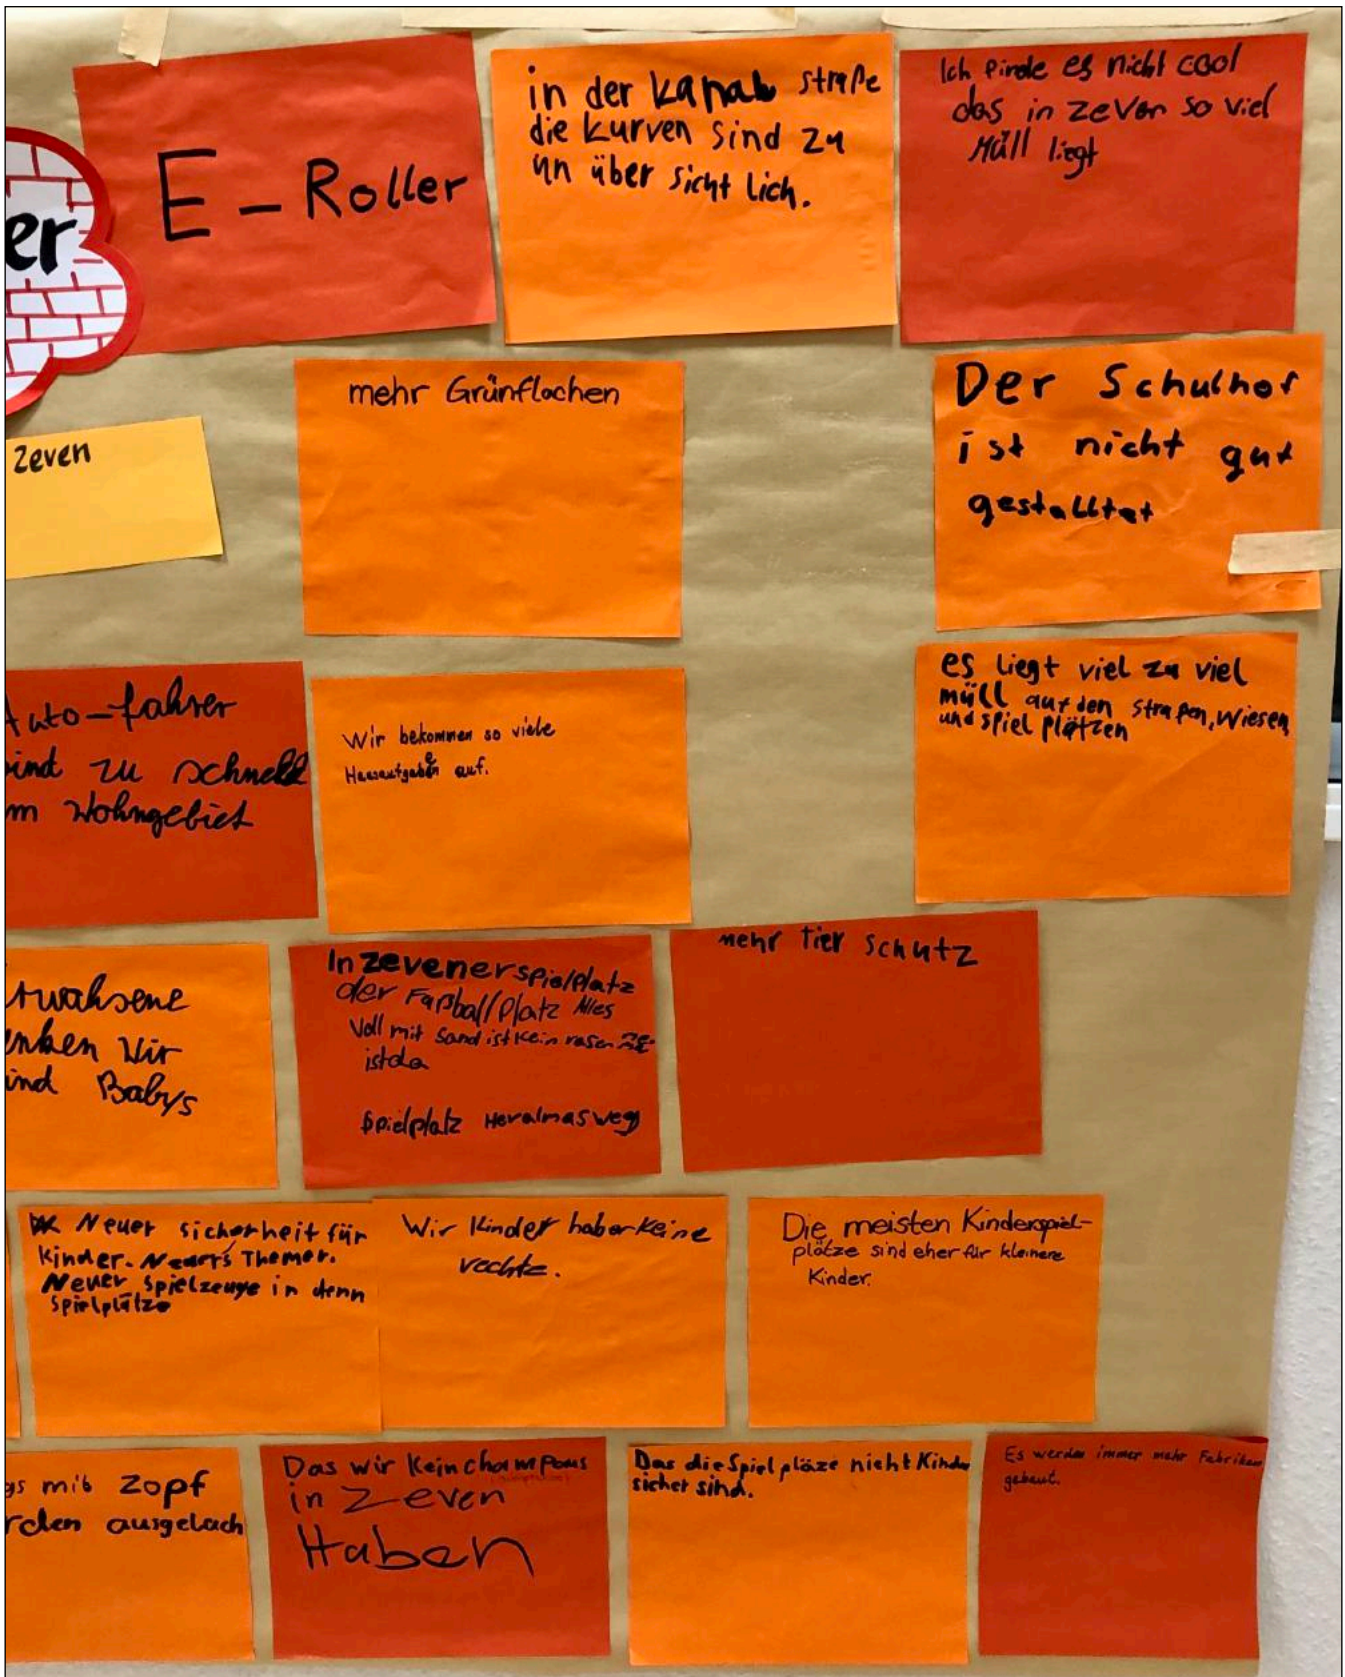 er
E-Roller
in der kanal straße
die kurven sind zu
un über sicht lich.
Ich finde es nicht cool
das in zeven so viel
Müll liegt
Zeven
mehr Grünflachen
Der Schulhof
ist nicht gut
gestalltet
Auto-fahrer
sind zu schnell
m Wohngebiet
Wir bekommen so viele
auf.
es liegt viel zu viel
müll auf den straßen, wiesen
und spiel plätzen
rwahsene
enken Wir
ind Babys
In zevener spielplatz
der Fußballplatz Alles
Voll mit Sand ist kein rasen
ist da
Spielplatz
mehr tier schutz
Neuer sicherheit für
Kinder. Themer.
Neuer spielzeuge in denn
Spielplätze
Wir Kinder haben keine
rechte.
Die meisten Kinderspiel-
plätze sind eher für kleinere
Kinder.
gs mit Zopf
rden ausgelach
Das wir kein champous
in Zeven
Haben
Das die Spiel pläze nicht Kinder
sicher sind.
Es werden immer mehr Fabriken
gebaut.